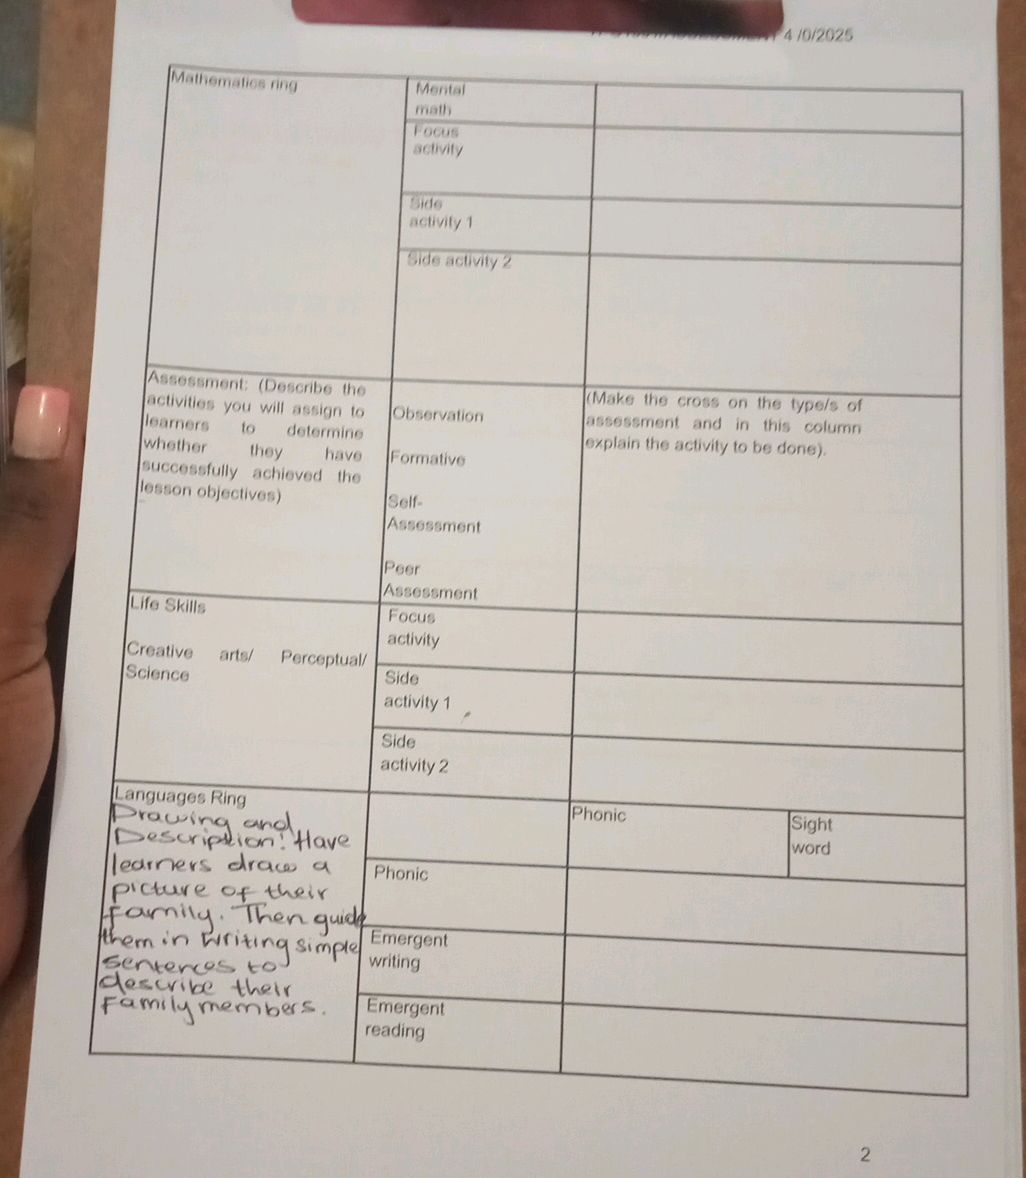 4 /0/2025
Mathematics ring
Mental
math
Focus
activity
Side
activity 1
Side activity 2
Assessment: (Describe the
activities you will assign to
learners to determine
whether they have
successfully achieved the
lesson objectives)
Observation
Formative
Self-
Assessment
Peer
Assessment
(Make the cross on the type/s of
assessment and in this column
explain the activity to be done).
Life Skills
Creative arts/ Perceptual/
Science
Focus
activity
Side
activity 1
Side
activity 2
Languages Ring
Drawing and
Description: Have
learners draw a
picture of their
family. Then guide
them in writing simple
sentences to
describe their
Family members.
Phonic
Sight
word
Phonic
Emergent
writing
Emergent
reading
2